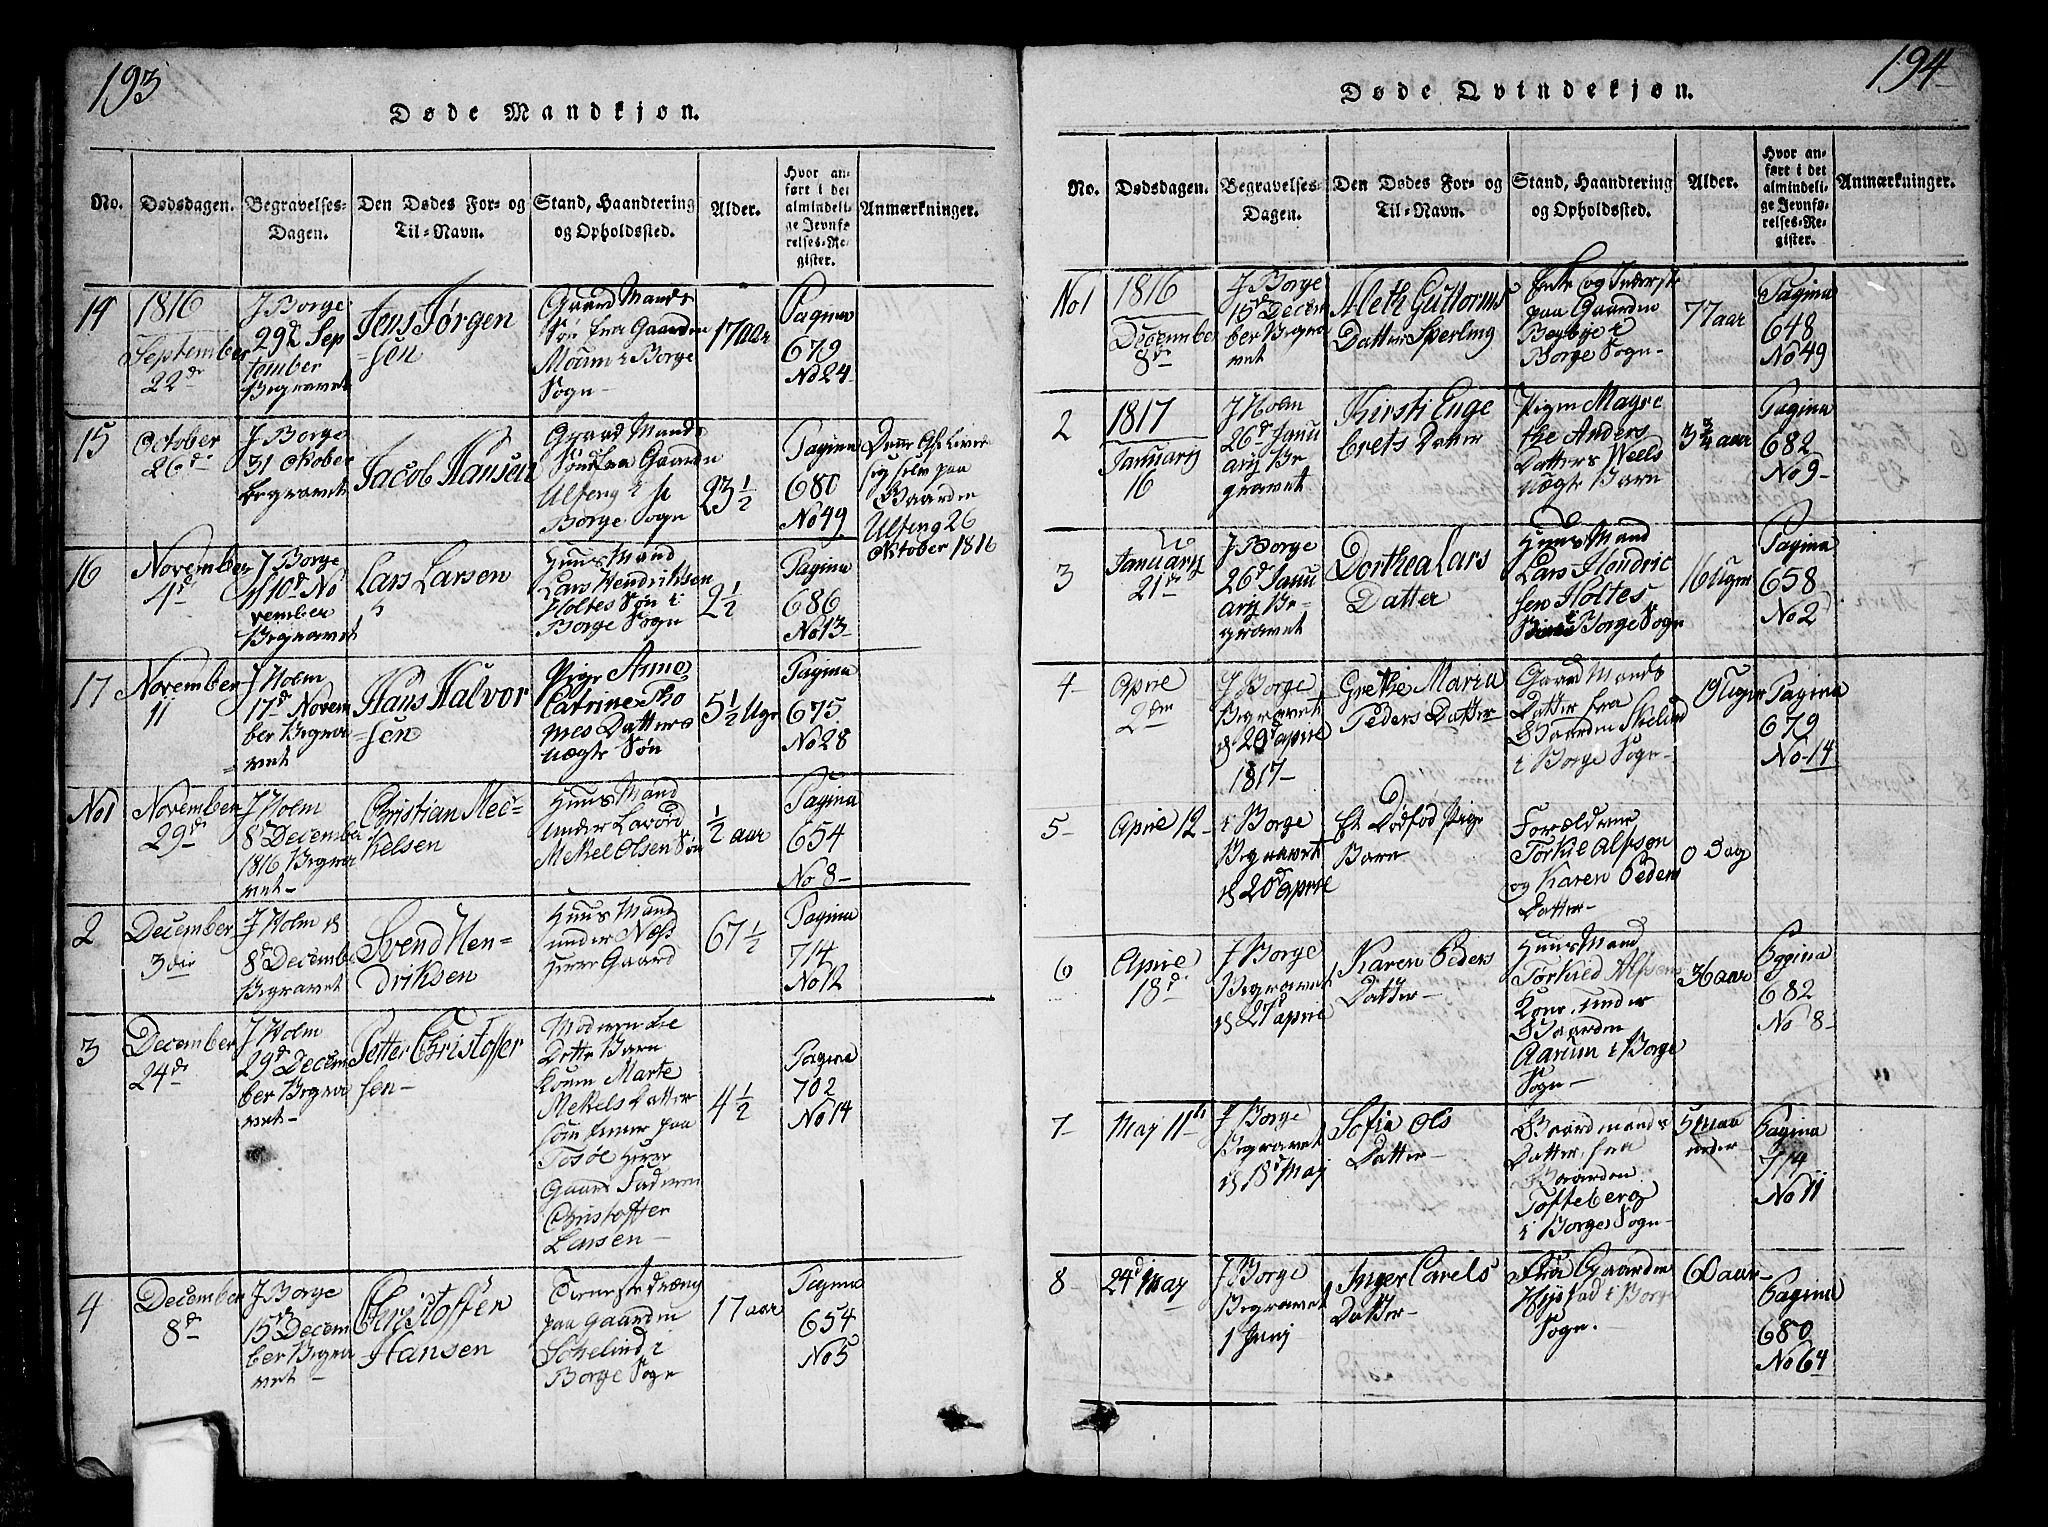 193
Døde Mandkjøn.
No.
Dødsdagen.
Begravelses-
Dagen.
Den Dødes For- og
Til-Navn.
Stand, Haandtering
og Opholdssted.
Alder.
Hvor an-
ført i det
almindeli-
ge Jevnfø-
relses-Re-
gister.
Anmærkninger.
14
1816
September
22de
J Borge
29d Sep
tember
Begravet
Jens Jørgen
sen
Gaard Mands
Søn fra Gaarden
Moum i Borge
Sogn
17 aar
Pagina
679
No 24
15
October
26de
J Borge
31 Oktober
begravet
Jacob Hansen
Gaard Mands
Søn fra Gaarden
Ulfeng i
Borge Sogn
23 1/2
Pagina
680
No 49
sig selv paa
Gaarden
Ulfeng 26
Oktober 1816
16
November
4d
J Borge
10d No
vember
Begravet
Lars Larsen
Huus Mand
Lars Hendriksen
Holtes Søn i
Borge Sogn
2 1/2
Pagina
686
No 13
17
November
11
J Holm
17d Novem
ber Begra
vet
Hans Halvor
sen
Pige Anne
Catrine Tho
mes Datters
uægte Søn
5 1/2 Uge
Pagina
675
No 28
No 1
November
29de
J Holm
8d December
1816 Begra
vet
Christian Mec-
kelsen
Huus Mand
under
Mekel Olsen Søn
1/2 aar
Pagina
654
No 8
2
December
3die
J Holm
8d December
Begravet
Svend Hen-
driksen
Huus Mand
under Næss
Herre Gaard
67 1/2
Pagina
714
No 12
3
December
24d
J Holm
29d Decem
ber Begra
vet
Petter Christoffer
sen
Moderen te
Dette Barn
Marte
Mekels Datter
som tiener paa
Tosøe Herre
Gaard Faderen
Christoffer
Larsen
4 1/2
Pagina
702
No 14
4
December
8d
J Borge
15d Decem
ber Begra
vet
Christoffer
Hansen
Tienestedræng
paa Gaarden
Skielind i
Borge Sogn
17 aar
Pagina
654
No 5
194
Døde Qvindekjøn.
No.
Dødsdagen.
Begravelses-
Dagen.
Den Dødes For- og
Til-Navn.
Stand, Haandtering
og Opholdssted.
Alder.
Hvor an-
ført i det
almindeli-
ge Jevnfø-
relses-Re-
gister.
Anmærkninger.
No 1
1816
December
8d
J Borge
15d Decem
ber Begra
vet
Meth Guttorms
Datter Sperling
Enke og Inderste
paa Gaarden
Begbye i
Borge Sogn
77 aar
Pagina
648
No 49
2
1817
January
16
J Holm
26d Janu
arij Be
gravet
Kirsti Enge
brets Datter
Pigen Magre
the Anders
Datters
uægte Barn
3 3/4 aar
Pagina
682
No 9
3
January
21de
J Borge
26d Janu
arij Be
gravet
Dorthea Lars
Datter
Huus Mand
Lars Hendric
sen Holtes
Borge Sogn
16 Uger
Pagina
658
No 2
4
Apríe
2den
J Borge
Begravet
d 20d aprie
1817
Grethe Maria
Peders Datter
Gaard Mands
Datter fra
Gaarden Skelind
i Borge Sogn
Uger
Pagina
679
No 14
5
Aprie 12
i Borge
Begravet
d 20d aprie
Et Dødfød Pige
Barn
Forældrene
Torkil Alfson
og Karen Peders
Datter
0 Dag
6
Aprie
18d
J Borge
Begravet
d 27 aprie
Karen Peders
Datter
Huus Mand
Torkied Alfsens
Kone, under
Gaarden
Aarum i Borge
Sogn
36 aar
Pagina
682
No 8
7
May 11te
J Borge
Begravet
d 18d Maj
Sofia Ols
Datter
Gaardmands
Datter, fra
Gaarden
Tofteberg
i Borges Sogn
5 Maa
neder
Pagina
714
No 11
8
24d May
J Borge
Begravet
1 Junj
Inger Carels
Datter
Fra Gaarden
i Borge
Sogn.
60 aar
Pagina
680
No 64